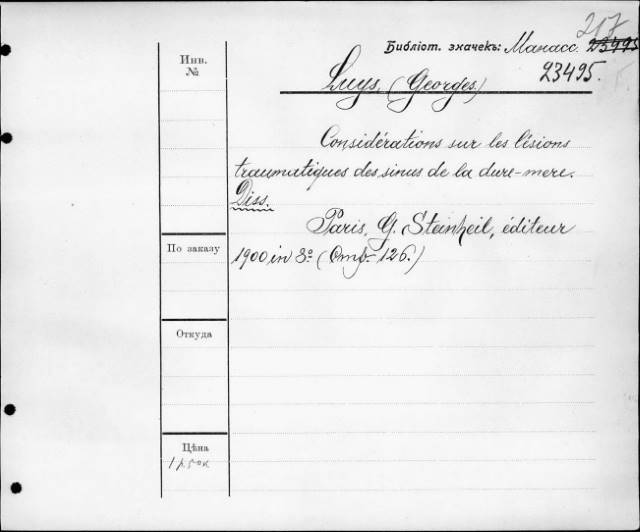 217
Библіот. значекъ: Манасс. 23495
Инв.
№
23495.
Luys, (Georges.)
Considérations sur les lésions
traumatiques des sinus de la dure-mere.
Diss.
Paris, G. Steinheil, éditeur
По заказу
1900 in 8º (Отд. 126.)
Откуда
Цѣна
1 р. 50 к